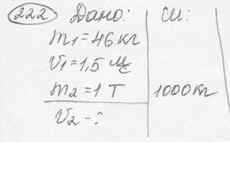 222 Дано: СИ:
m1=46кг
V1=1,5 м/с
m2=1 Т 1000кг
V2-?